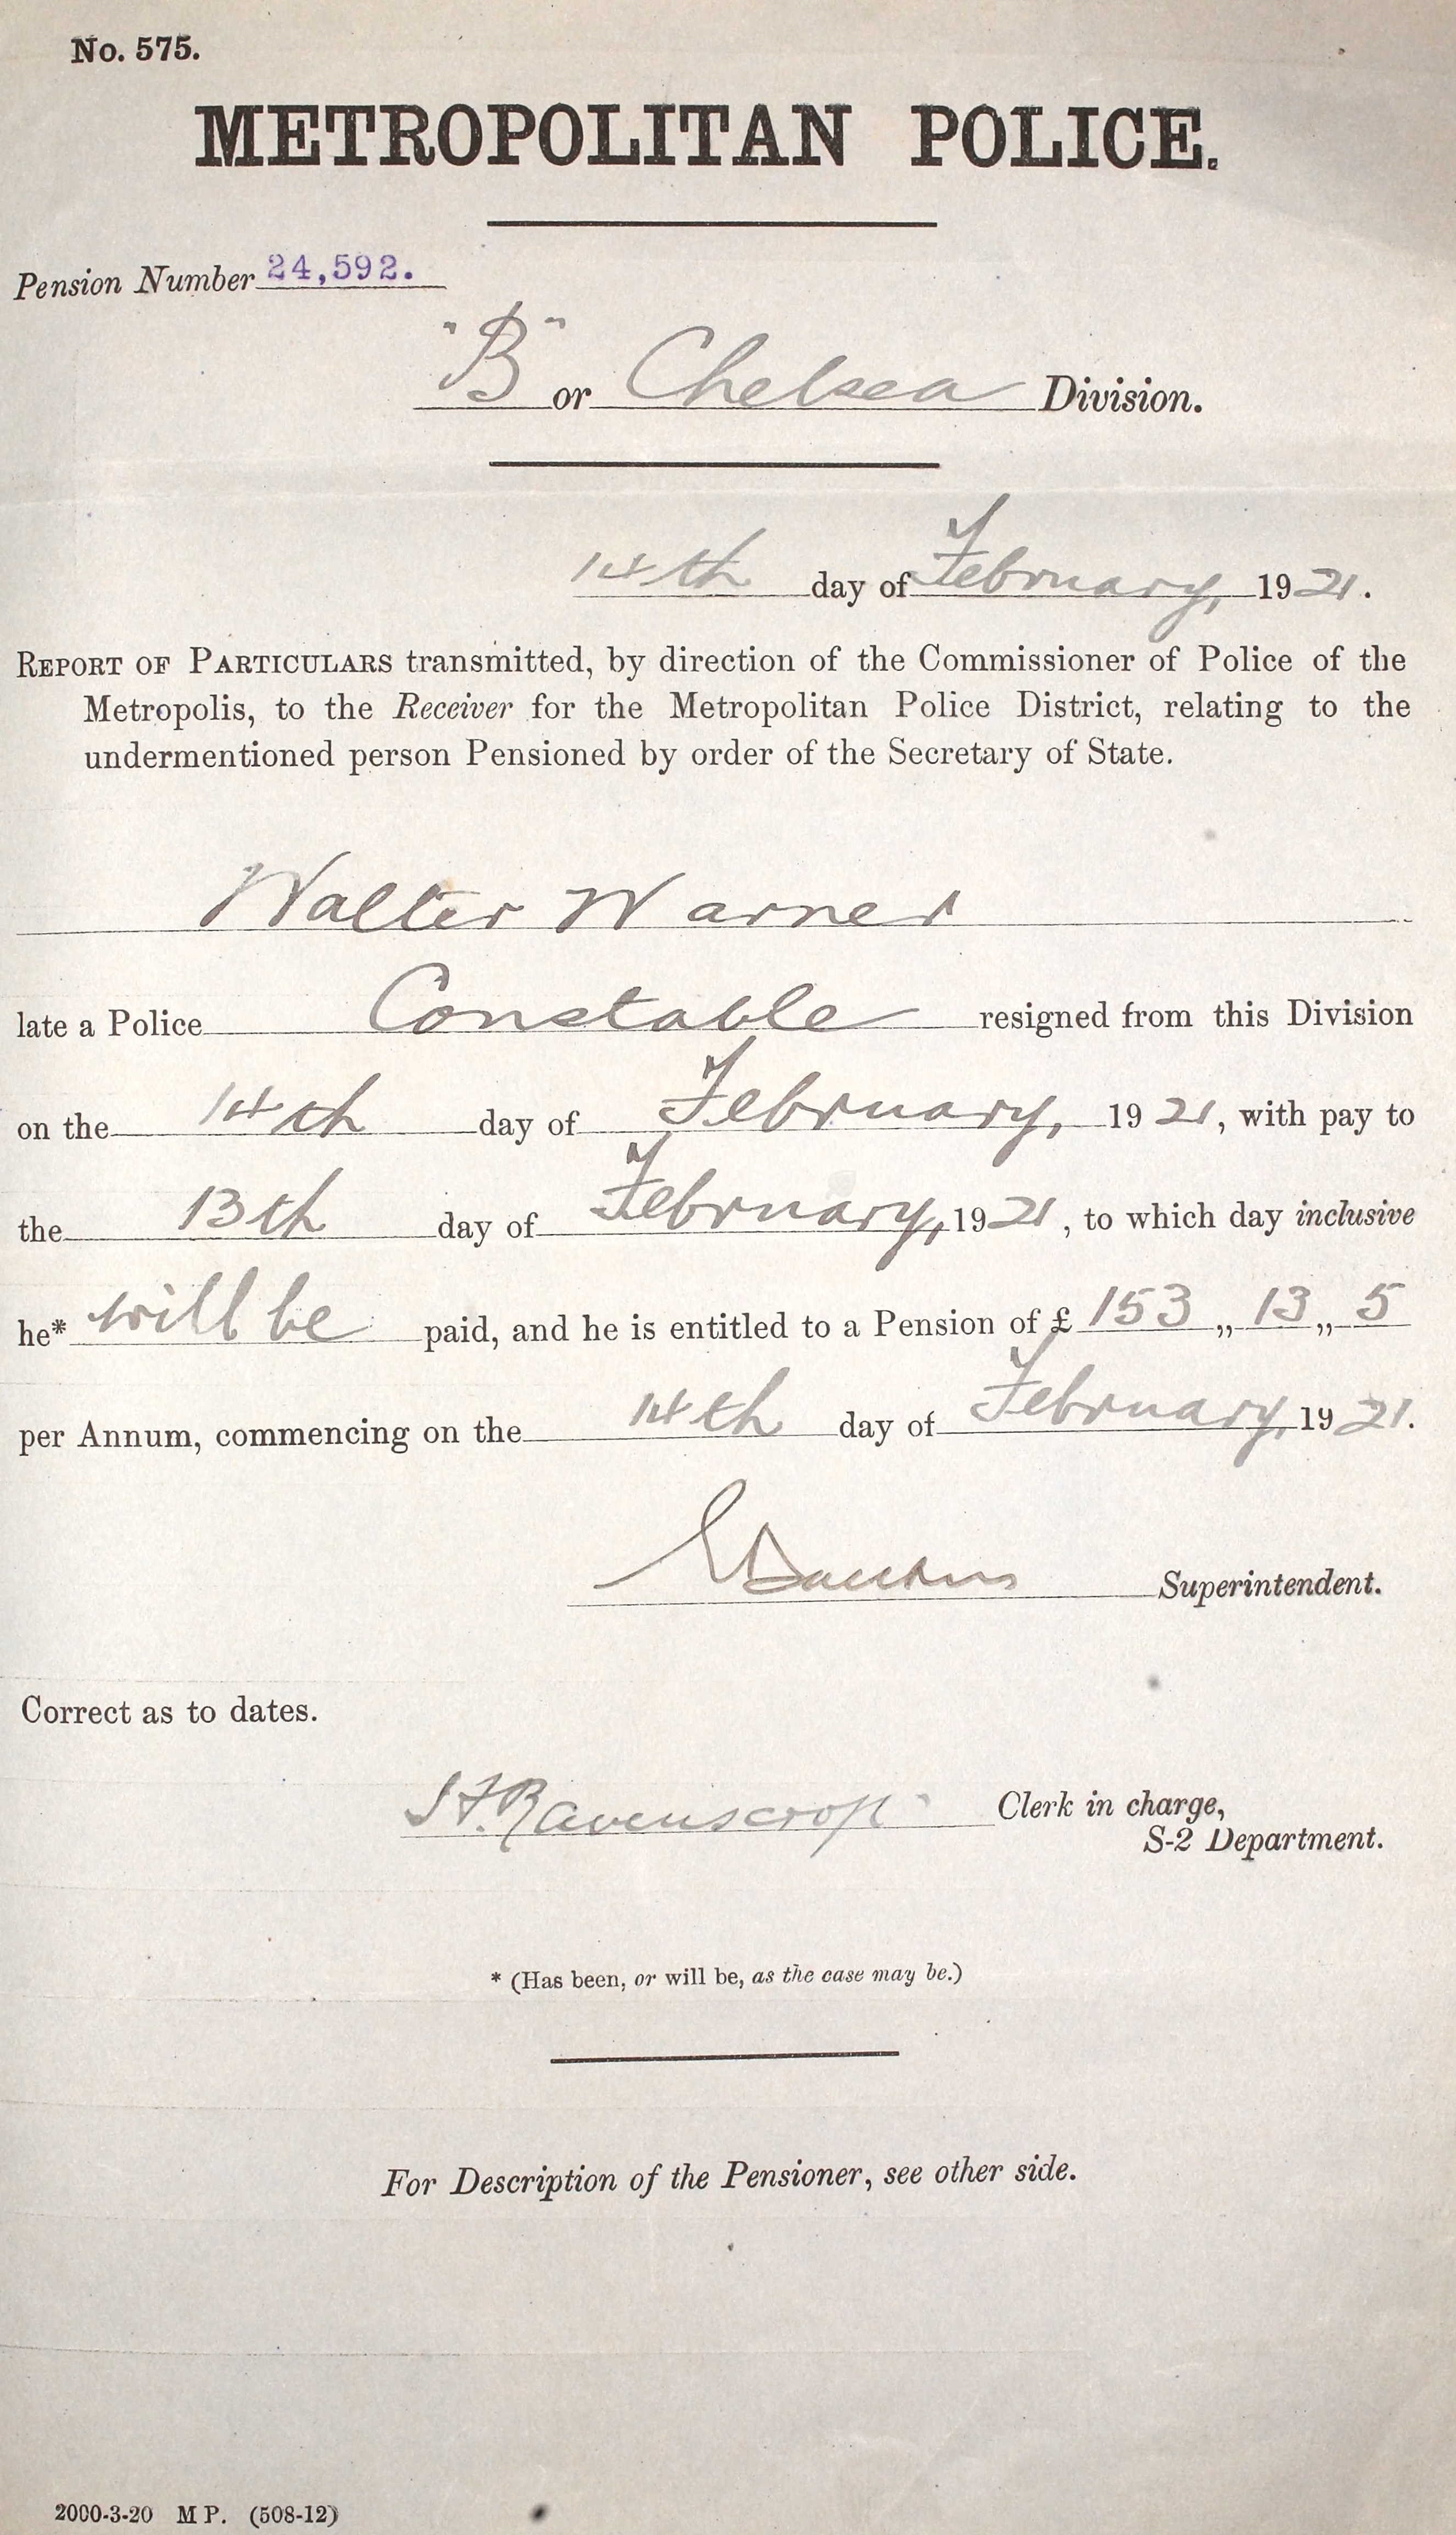 No. 575.
METROPOLITAN POLICE.
Pension Number 24,592.
"B" or Chelsea Division.
14th day of February, 1921.
REPORT OF PARTICULARS transmitted, by direction of the Commissioner of Police of the
Metropolis, to the Receiver for the Metropolitan Police District, relating to the
undermentioned person Pensioned by order of the Secretary of State.
Walter Warner
late a Police Constable resigned from this Division
on the 14th day of February, 1921, with pay to
the 13th day of February, 1921, to which day inclusive
he* will be paid, and he is entitled to a Pension of £ 153 „ 13 „ 5
per Annum, commencing on the 14th day of February, 1921.
Superintendent.
Correct as to dates.
Ravenscroft Clerk in charge,
S-2 Department.
* (Has been, or will be, as the case may be.)
For Description of the Pensioner, see other side.
2000-3-20 M P. (508-12)